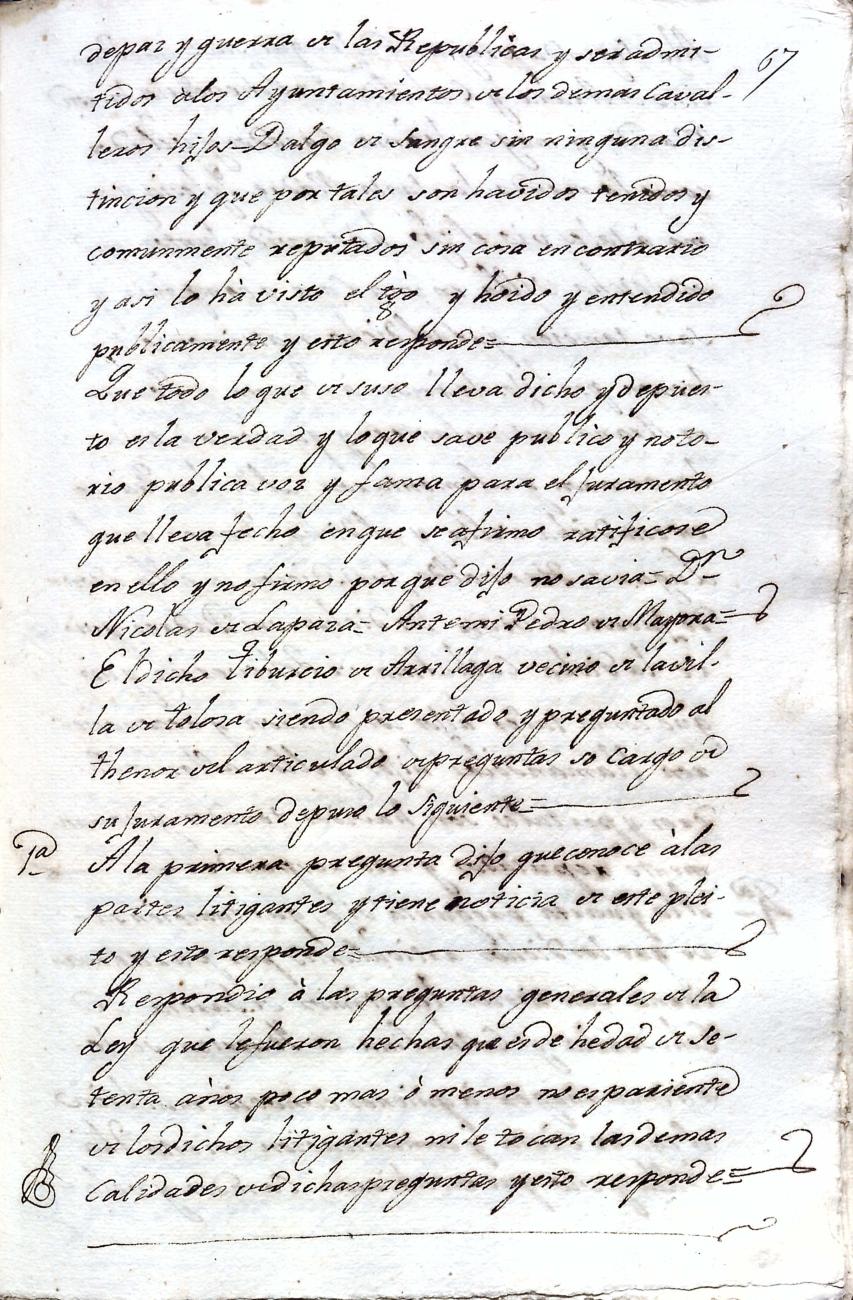 67
depaz y guerra de las Republicas y ser admi-
tidos alos Ayuntamientos de los demas Caval-
leros hijos-Dalgo de sangre sin ninguna dis-
tincion y que por tales son havidos tenidos y
comunmente reputados sin cosa en contrario
y asi lo hà visto el tgo y hoido y entendido
publicamente y esto responde=
Que todo lo que de suso lleva dicho y depues-
to es la verdad y lo que save publico y noto-
rio publica voz y fama para el Juramento
que lleva fecho en que se afirmo ratificose
en ello y no firmo por que dijo no savia= Dn
Nicolas de Lapaza= Ante mi Pedro de Mayora=
El dicho Tiburcio de Arrillaga vecino de la vil-
la de Tolosa siendo presentado y preguntado al
thenor del articulado de preguntas so cargo de
su Juramento depuso lo siguiente=
1a
A la primera pregunta dijo que conoce à las
partes litigantes y tiene noticia de este plei-
to y esto responde=
Respondio à las preguntas generales de la
Ley que le fueron hechas que es de hedad de se-
tenta años poco mas ò menos no es pariente
de los dichos litigantes ni le tocan las demas
Calidades de dichas preguntas y esto responde=